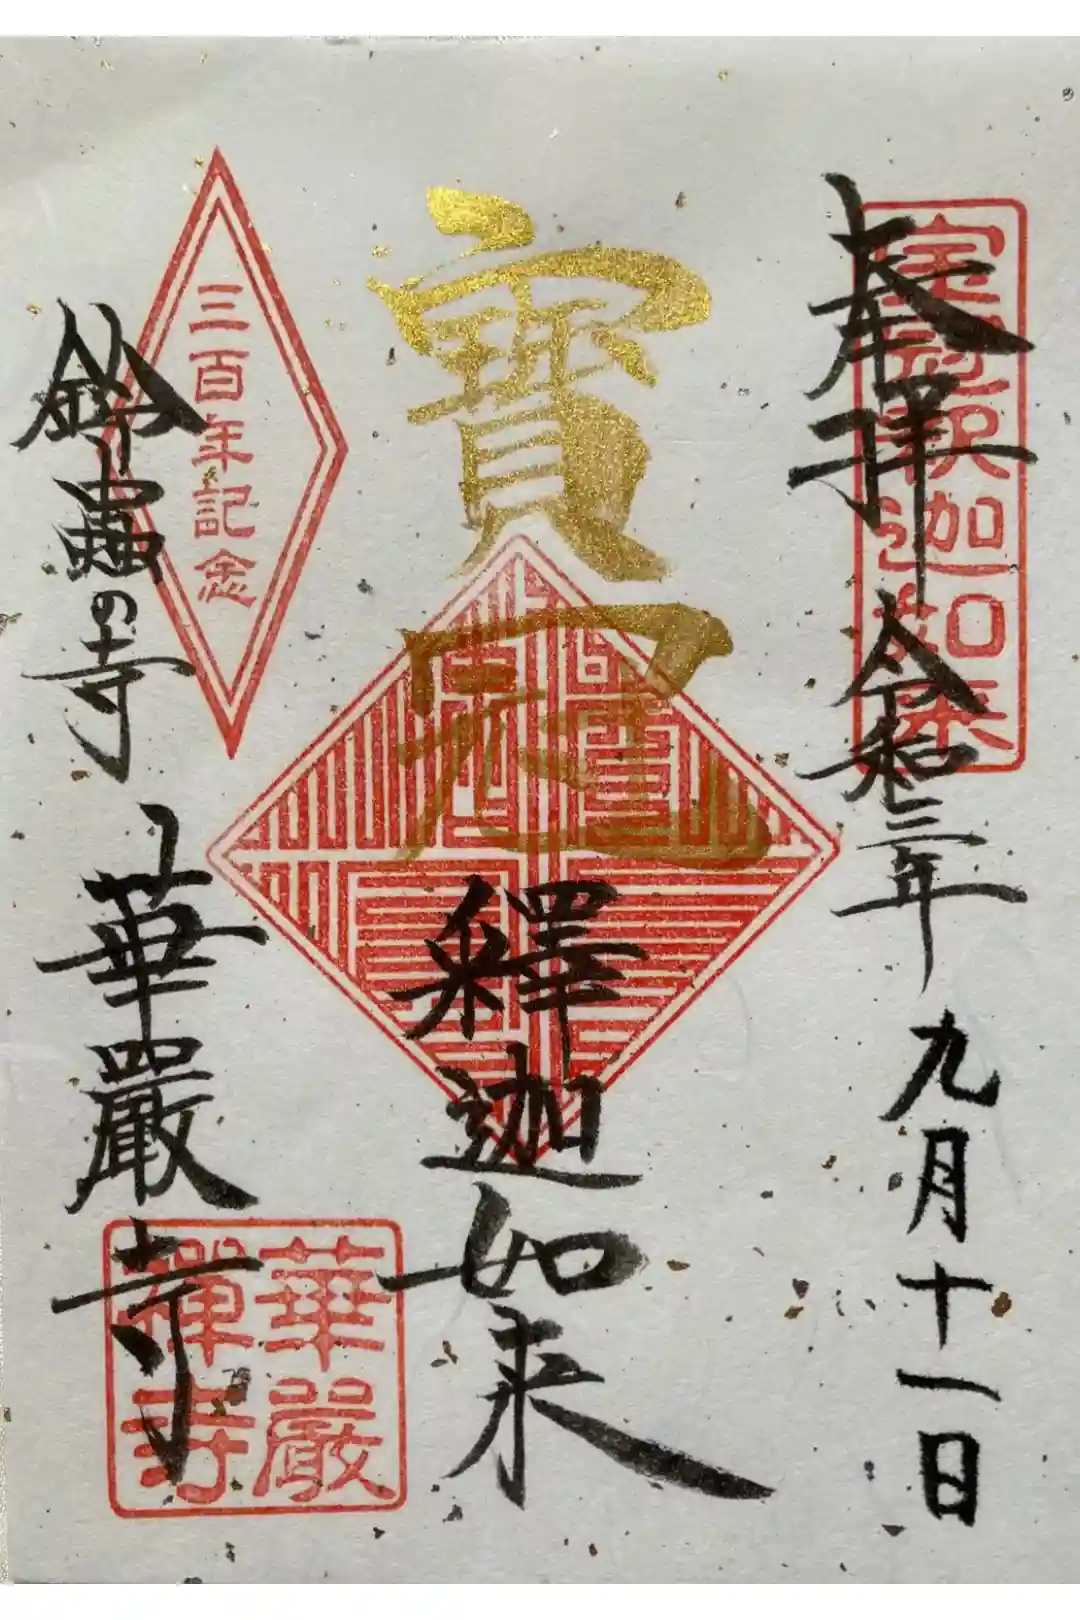 奉拝 令和三年 九月十一日
宝冠釈迦如来
寳冠
釋迦如来
三百年記念
鈴蟲の寺 華嚴寺
華嚴
禅寺